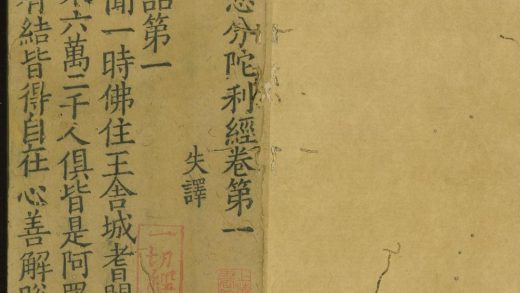 悲分陀利經卷第一
失譯
品第一
聞一時佛住王舍城耆闍
六萬二千人俱皆是阿羅
結皆得自在心善解脫
一切經